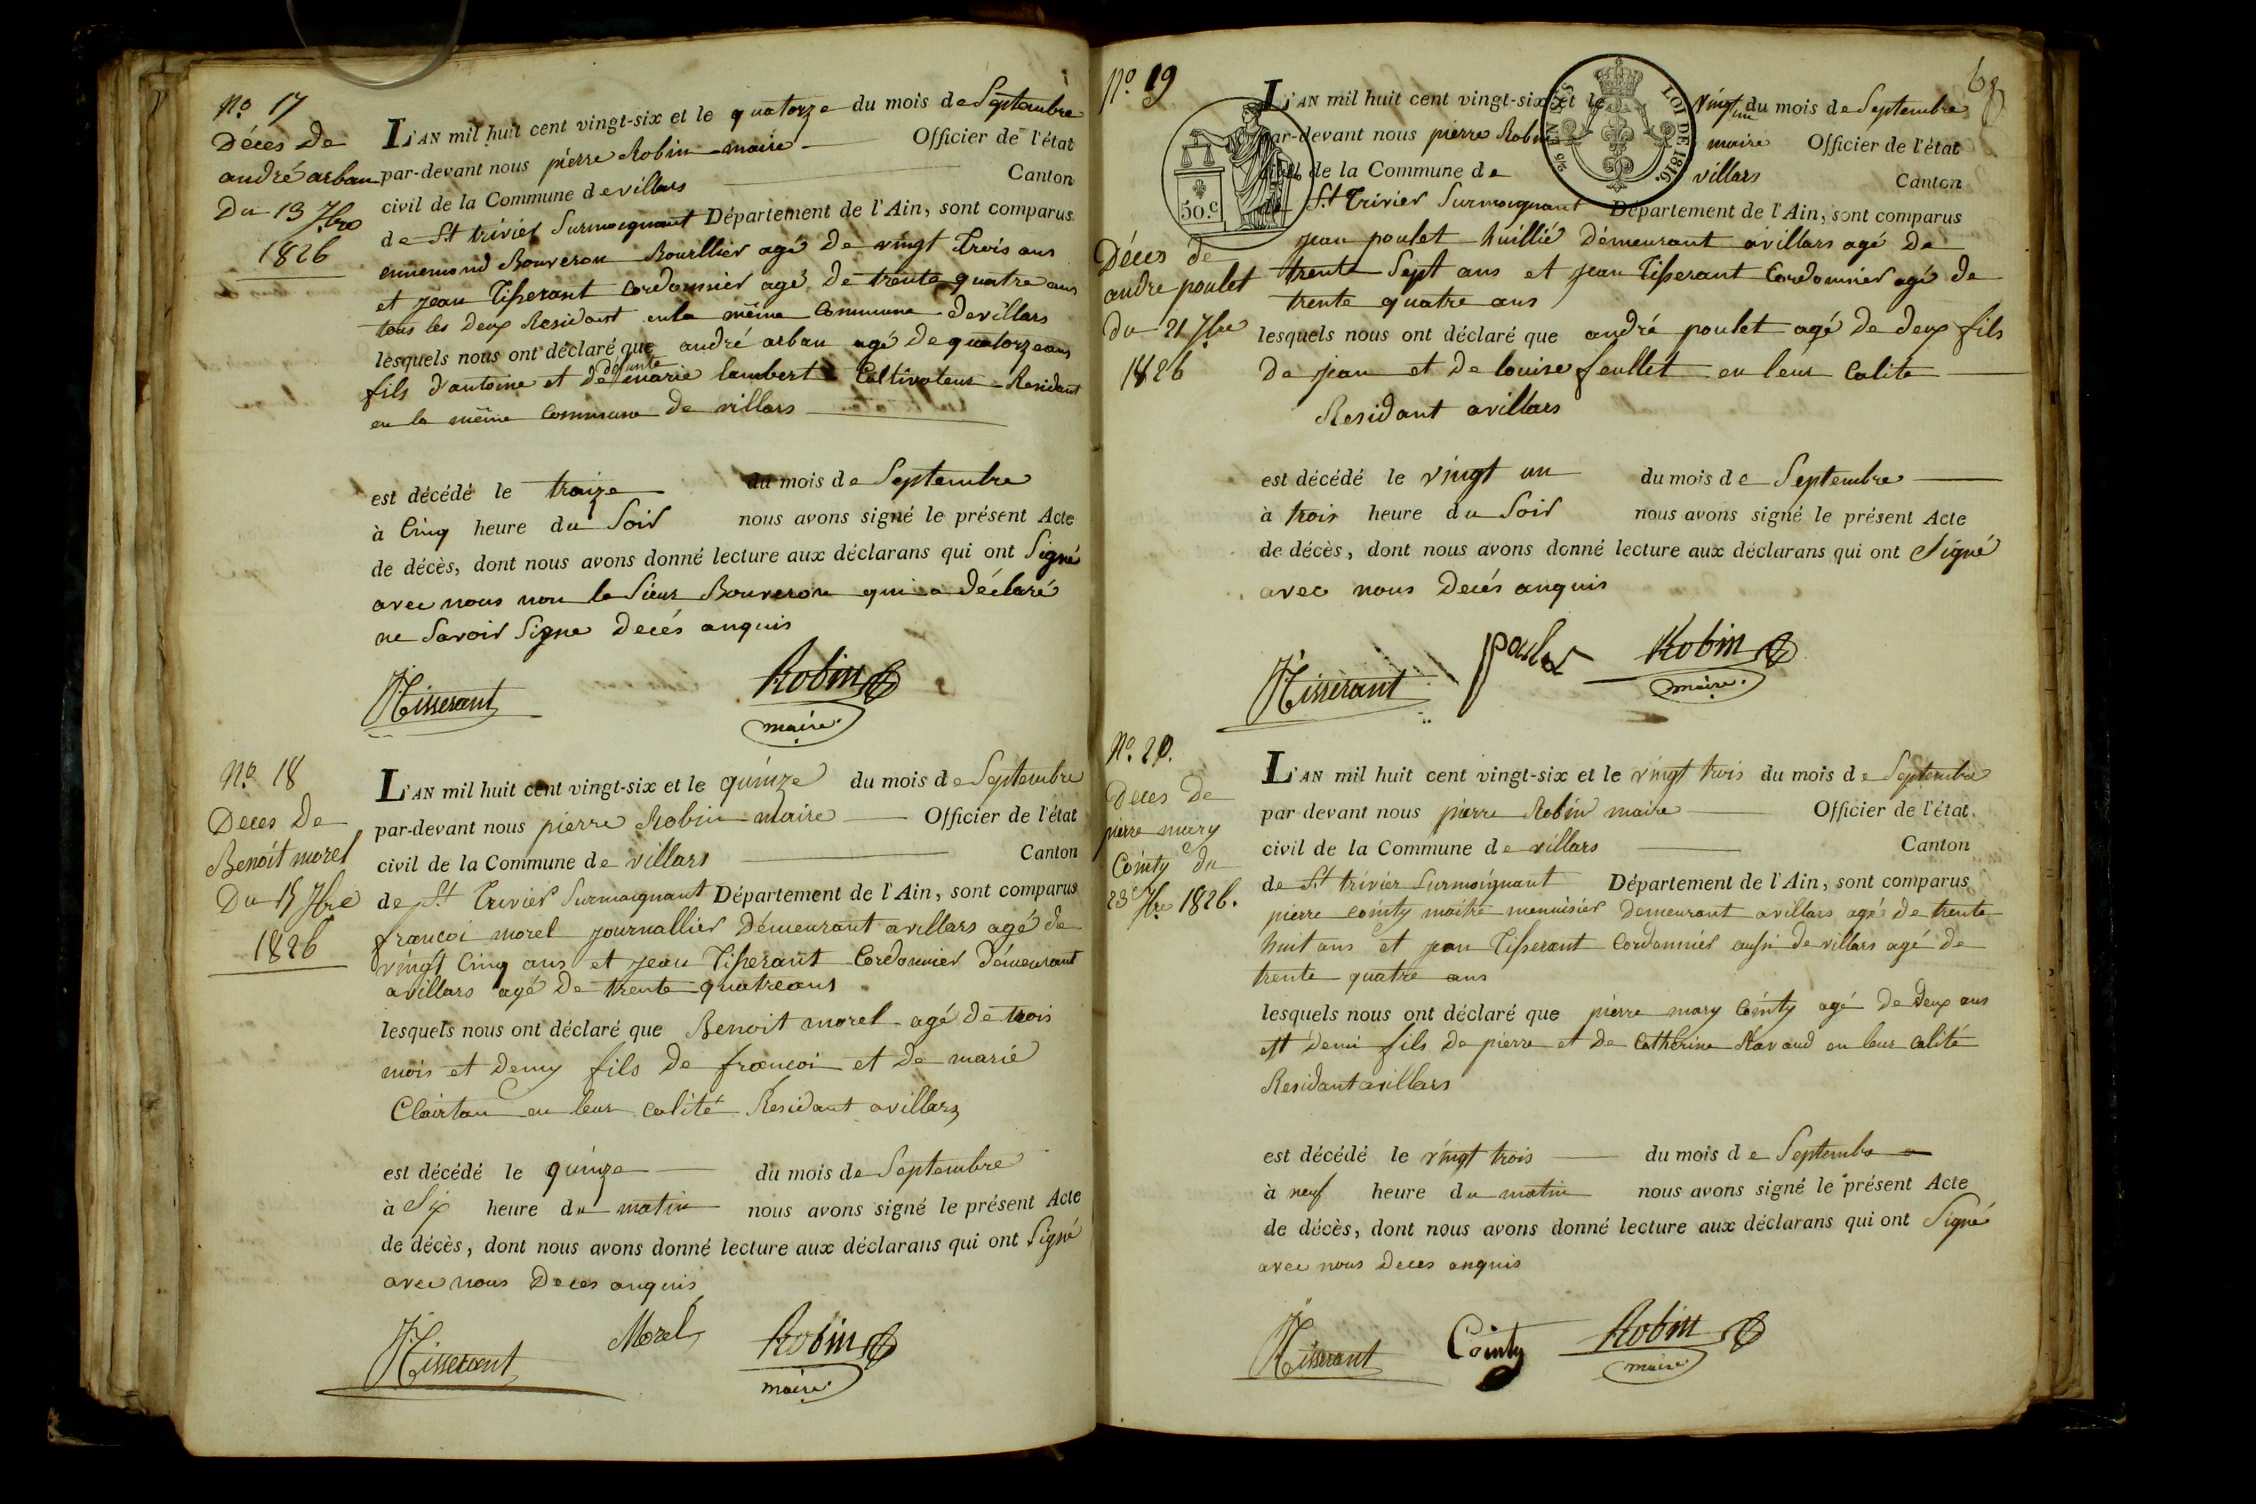 No. 17
Décès de
andré arban
Du 13 7bre
1826
L'AN mil huit cent vingt-six et le quatorze du mois de Septembre
par-devant nous pierre Robin maire Officier de l'état
civil de la Commune de villars Canton
de St trivier Surmoignant Département de l'Ain, sont comparus
ennemond Bouveron Bourllier agé de vingt trois ans
et jean Tisserant Cordonnier agé De trente quatre ans
tous les deux Residant en la même Commune de villars
lesquels nous ont déclaré que andré arban agé De quatorze ans
fils d'antoine et de defunte marie lambert Cultivateur Residant
en la même Commune de villars
est décédé le traize du mois de Septembre
à Cinq heure du Soir nous avons signé le présent Acte
de décès, dont nous avons donné lecture aux déclarans qui ont Signé
avec nous non le Sieur Bouveron qui a déclaré
ne Savoir Signe Decés anquis
JTisserant Robin
maire
No. 18
Deces De
Benoit morel
Du 15 7bre
1826
L'AN mil huit cent vingt-six et le quinze du mois de Septembre
par-devant nous pierre Robin maire Officier de l'état
civil de la Commune de villars Canton
de St. Trivier Surmoignant Département de l'Ain, sont comparus
francoi morel journallier Démeurant avillars agé de
vingt Cinq ans et jean Tisserant Cordonnier Démeurant
avillars agé De trente quatre ans
lesquels nous ont déclaré que Benoit morel agé de trois
mois et Demy fils De francoi et De marie
Clairtan en leur calité Residant avillars
est décédé le quinze du mois de Septembre
à Six heure du matin nous avons signé le présent Acte
de décès, dont nous avons donné lecture aux déclarans qui ont Signé
avec nous Deces anquis
JTisserant Morel Robin
maire
No. 19
68
50.c
LOI DE 1816.
Décès de
andre poulet
Du 21 7bre
1826
L'AN mil huit cent vingt-six et le vingt un du mois de Septembre
par-devant nous pierre Robin maire Officier de l'état
civil de la Commune de villars Canton
de St Trivier Surmoignant Département de l'Ain, sont comparus
jean poulet huillié Démeurant avillars agé De
trente Sept ans et jean Tisserant Cordonnier agé de
trente quatre ans
lesquels nous ont déclaré que andré poulet agé De deux fils
De jean et De louise feullet en leur Calite
Residant avillars
est décédé le vingt un du mois de Septembre
à trois heure du Soir nous avons signé le présent Acte
de décès, dont nous avons donné lecture aux déclarans qui ont Signé
avec nous Decés anquis
JTisserant poulet Robin
maire.
No. 20.
Deces De
pierre mary
Cointy du
23 7bre 1826.
L'AN mil huit cent vingt-six et le vingt trois du mois de Septembre
par devant nous pierre Robin maire Officier de l'état
civil de la Commune de villars Canton
de St trivier Surmoignant Département de l'Ain, sont comparus
pierre cointy maitre menuisier Demeurant avillars agé de trente
huit ans et jean Tisserant Cordonnier aussi de villars agé de
trente quatre ans
lesquels nous ont déclaré que pierre mary Cointy agé De Deux ans
est démi fils De pierre et De Catherine Ravaud en leur Calité
Residant avillars
est décédé le vingt trois du mois de Septembre
à neuf heure du matin nous avons signé le présent Acte
de décès, dont nous avons donné lecture aux déclarans qui ont Signé
avec nous Deces anquis
JTisserant Cointy Robin
maire